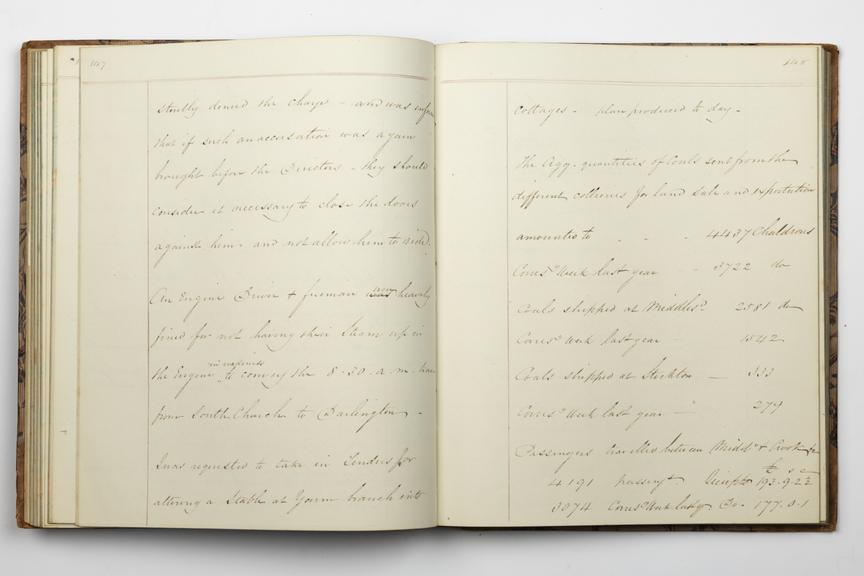 447
stoutly denied the charge – and was
that if such an accusation was again
brought before the Directors – they should
consider it necessary to close the doors
against him and not allow him to ride.
An Engine Driver & fireman were heavily
fined for not having their Steam up in
the Engine in readiness to convey the 8.30 a.m. train
from South Church to Darlington –
I was requested to take in Tenders for
altering a Stable at Yarm branch into
448
Cottages – plan produced to day –
The Agg. quantities of Coals sent from the
different collieries for land sale and exportation
amounted to . . . 4437 Chaldrons
Corres. Week last year – 3722 do
Coals shipped at Middlesº. 2581 do
Corres. Week last year
Coals shipped at Stockton – 333
Corres. Week last year – 279
Passengers travelled between Middº & Crook
£ s d
4191 passengs Receipts 193.9.2½
3074 Corres. Week last yr Do. 177.8.1